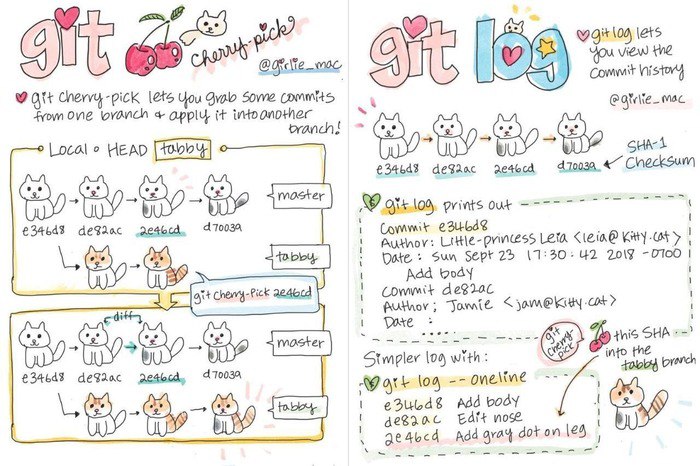 git
cherry-pick
@girlie_mac
git cherry-pick lets you grab some commits
from one branch & apply it into another
branch!
Local HEAD tabby
master
e346d8 de82ac 2e46cd d7003a
tabby
git cherry-pick 2e46cd
diff
master
e346d8 de82ac 2e46cd d7003a
tabby
git log
git log lets
you view the
commit history
@girlie_mac
e346d8 de82ac 2e46cd d7003a
SHA-1
Checksum
git log prints out
Commit e346d8
Author: Little-princess Leia <leia@kitty.cat>
Date: Sun Sept 23 17:30:42 2018 -0700
Add body
commit de82ac
Author; Jamie <jam@kitty.cat>
Date :.....
Simpler log with:
git cherry pick
this SHA
into the
tabby branch
git log --oneline
e346d8 Add body
de82ac Edit nose
2e46cd Add gray dot on leg